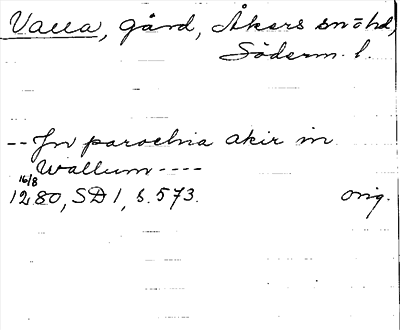 Valla, gård, Åkers sn o hd,
Söderm. l.
-- In parochia akir in
Wallum ----
16/8
1280, SD 1, s. 573. orig.